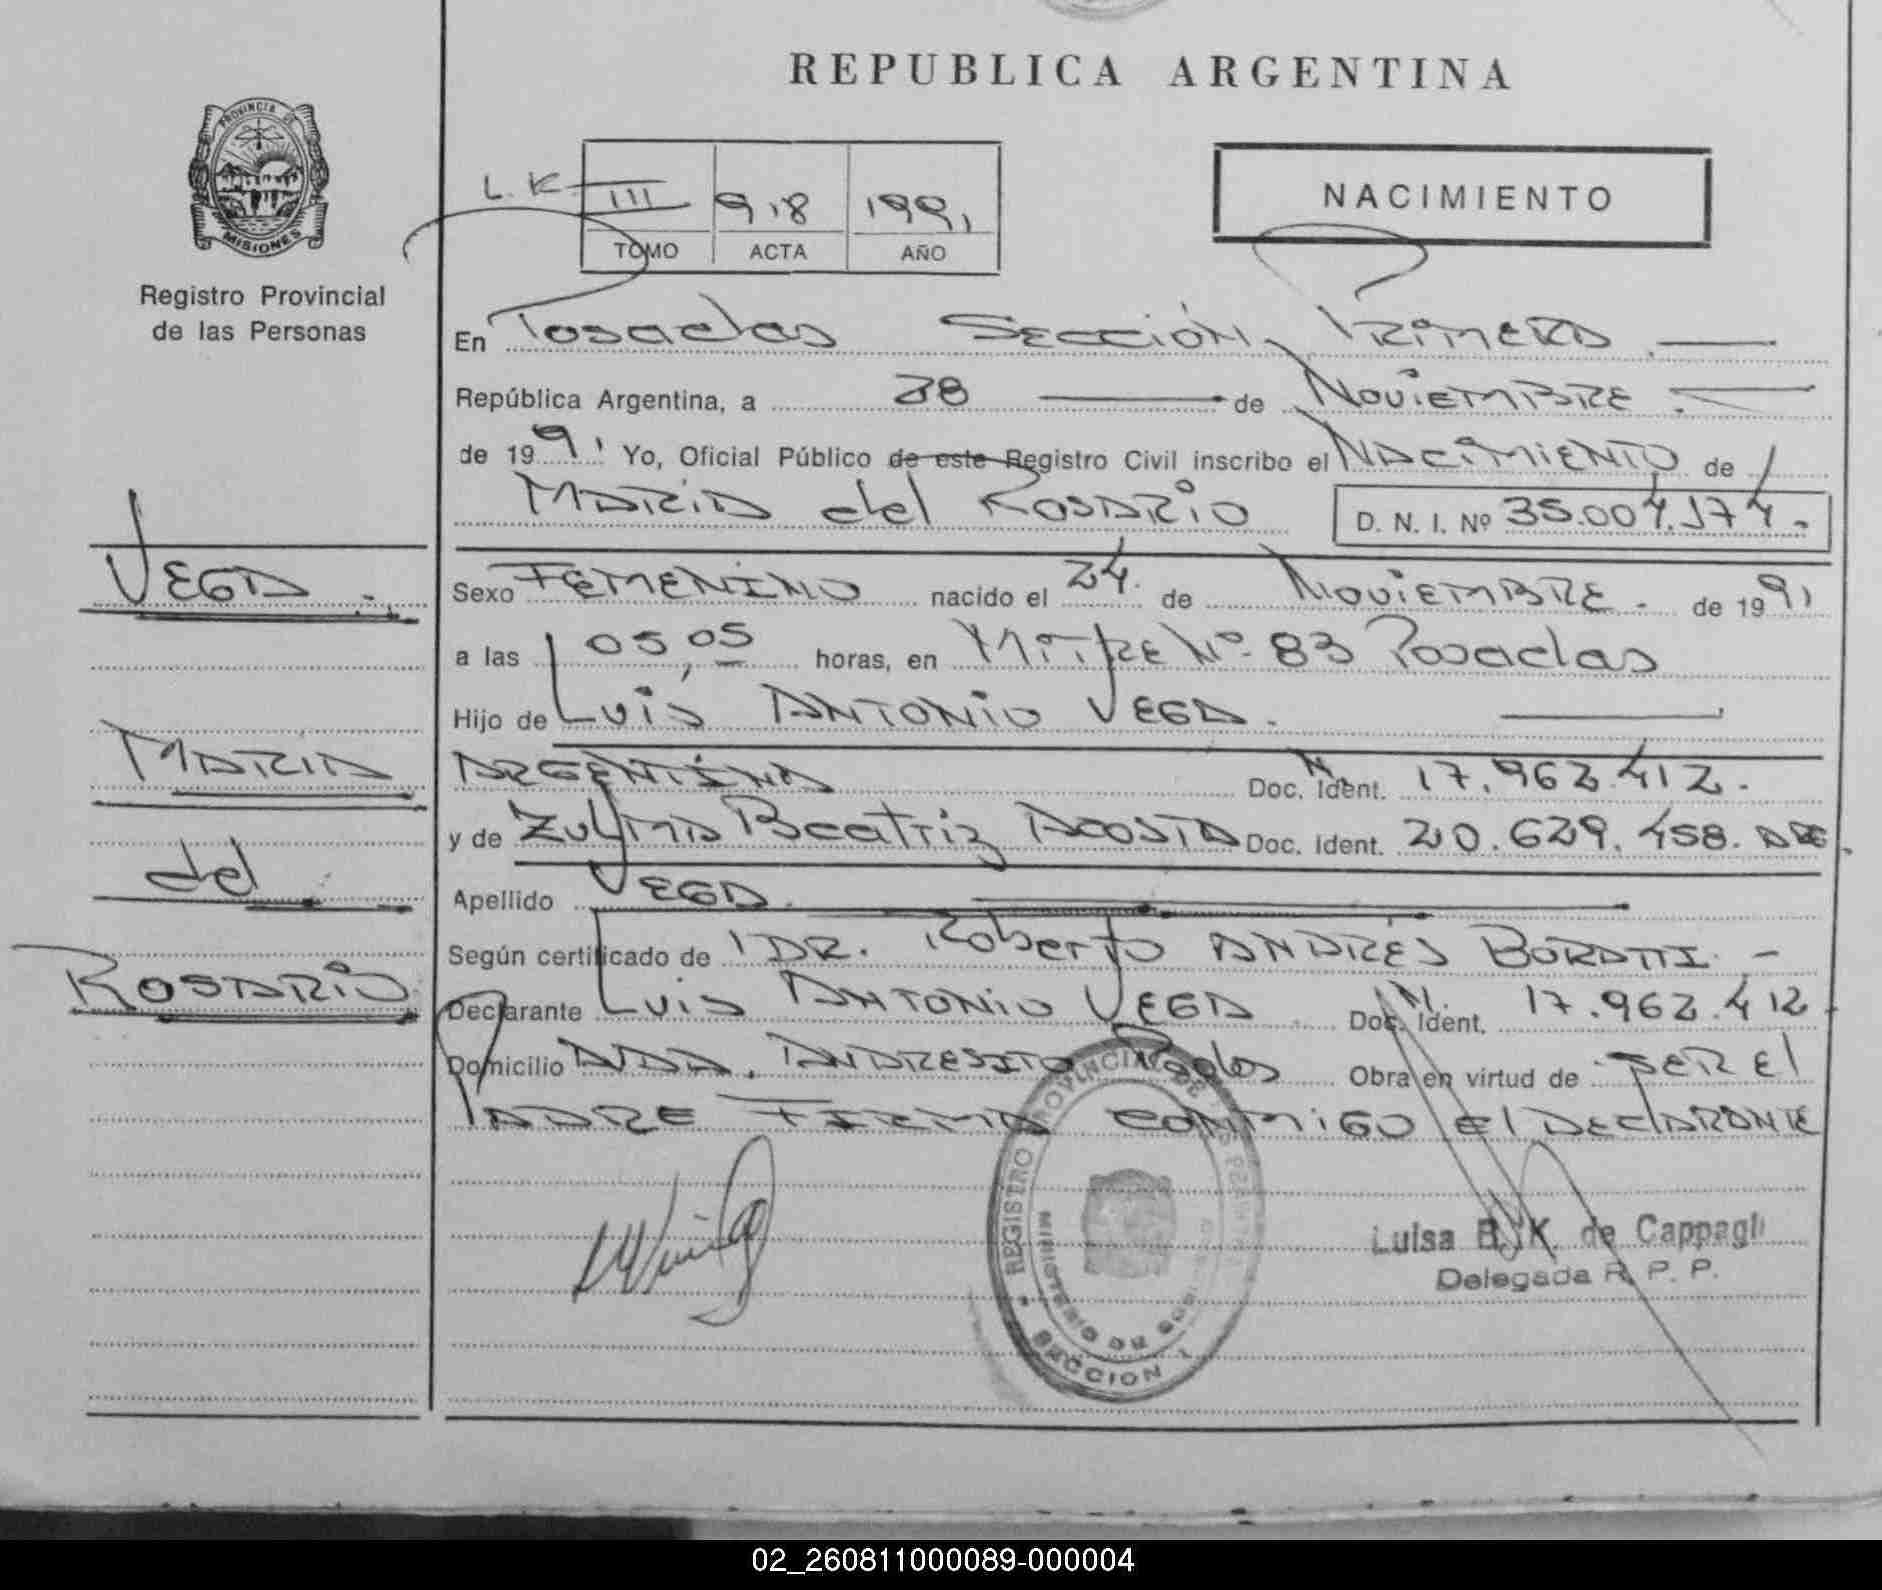 REPUBLICA ARGENTINA
PROVINCIA DE
MISIONES
Registro Provincial
de las Personas
L. K III 918 1991
TOMO ACTA AÑO
NACIMIENTO
En Posadas Sección Primera
República Argentina, a 28 de Noviembre
de 1991 Yo, Oficial Público de este Registro Civil inscribo el Nacimiento de
Maria del Rosario D. N. I. Nº 35.004.174.
Vega
Sexo Femenino nacido el 24. de Noviembre. de 1991
a las 05,05 horas, en Mitre Nº 83 Posadas
Hijo de Luis Antonio Vega.
Maria
Argentina Doc. Ident. 17.962.412.
y de Zulma Beatriz Acosta Doc. Ident. 20.629.458. Arg.
del
Apellido Vega.
Según certificado de Dr. Roberto Andrés Boratti. -
Rosario
Declarante Luis Antonio Vega Doc. Ident. 17.962.412
Domicilio Avda. Andresito Pdas Obra en virtud de ser el
Padre Firma conmigo el Declarante
REGISTRO PROVINCIAL DE LAS PERSONAS
MINISTERIO DE GOBIERNO
SECCION 1
Luisa B. K. de Cappagli
Delegada R. P. P.
02_260811000089-000004